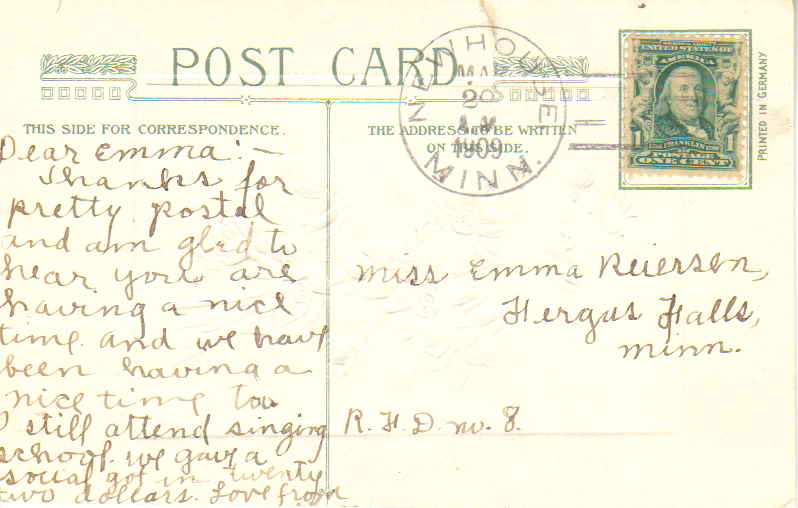 POST CARD
THIS SIDE FOR CORRESPONDENCE.
THE ADDRESS TO BE WRITTEN
ON THIS SIDE.
NEWHOUSE
MAR
20
A.M.
1909
MINN.
UNITED STATES OF
AMERICA
FRANKLIN
POSTAGE
ONE CENT
PRINTED IN GERMANY
Dear Emma:—
Thanks for
pretty postal
and am gled to
hear you are
having a nice
time and we have
been having a
nice time too
I still attend singing
school. we gave a
social got in twenty
two dollars. Love from
Miss Emma Reiersen,
Fergus Falls,
Minn.
R.F.D. no. 8.